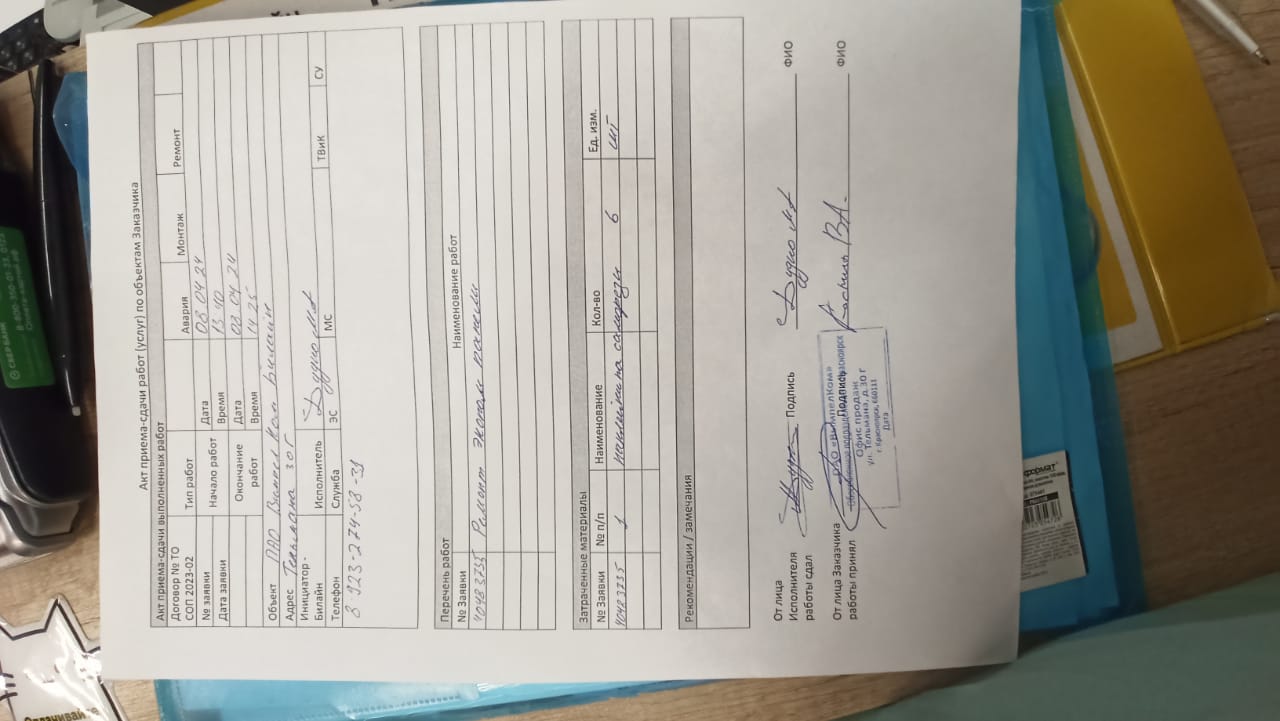 Акт приема-сдачи работ (услуг) по объектам Заказчика
Акт приема-сдачи выполненных работ
Договор № ТО СОП 2023-02
Тип работ Авария Монтаж Ремонт
№ заявки
Начало работ Дата 03 04 24
Дата заявки
Время 13 40
Окончание работ Дата 03 04 24
Время 14 25
Объект ПАО Билайн
Адрес Тельмана 30 Г
Инициатор - Билайн
Исполнитель
Телефон Служба ЭС МС ТВиК СУ
8-923-274-58-31
Перечень работ
№ Заявки Наименование работ
40483735 Ремонт панели
Затраченные материалы
№ Заявки № п/п Наименование Кол-во Ед. изм.
40483735 1 саморезы 6 шт
Рекомендации / замечания
От лица Исполнителя работы сдал Подпись ФИО
От лица Заказчика работы принял Подпись В.А. ФИО
ПАО «ВымпелКом»
Офис продаж
ул. Тельмана, д.30 г
г. Красноярск, 660111
Дата
СБЕРБАНК
Оплачивайте
формат